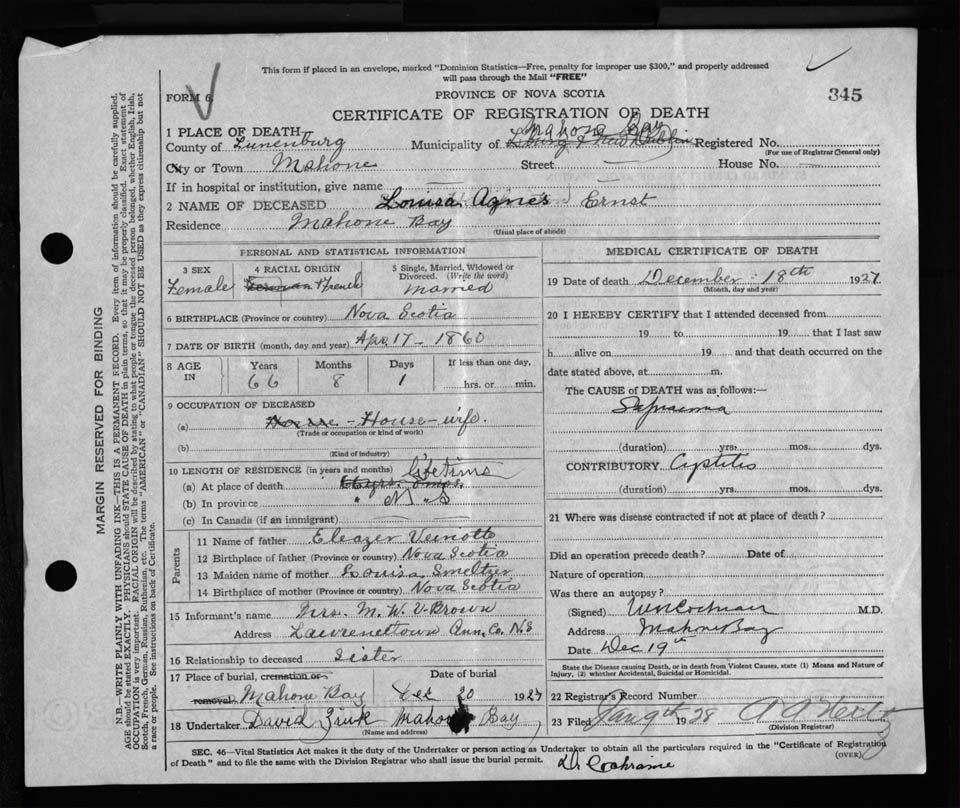 This form if placed in an envelope, marked "Dominion Statistics—Free, penalty for improper use $300," and properly addressed
will pass through the Mail "FREE"
FORM 6.
PROVINCE OF NOVA SCOTIA
345
CERTIFICATE OF REGISTRATION OF DEATH
1 PLACE OF DEATH
Mahone Bay
County of Lunenburg Municipality of Registered No.
(For use of Registrar General only)
City or Town Mahone Street House No.
If in hospital or institution, give name
2 NAME OF DECEASED Louisa Agnes Ernst
Residence Mahone Bay
(Usual place of abode)
PERSONAL AND STATISTICAL INFORMATION
3 SEX 4 RACIAL ORIGIN 5 Single, Married, Widowed or Divorced. (Write the word)
Female French Married
6 BIRTHPLACE (Province or country) Nova Scotia
7 DATE OF BIRTH (month, day and year) Apr. 17 - 1860
8 AGE IN Years Months Days If less than one day,
66 8 1 hrs. or min.
9 OCCUPATION OF DECEASED
(a) House-wife.
(Trade or occupation or kind of work)
(b)
(Kind of industry)
10 LENGTH OF RESIDENCE (in years and months) lifetime
(a) At place of death
(b) In province " N "S
(c) In Canada (if an immigrant)
Parents
11 Name of father Eleazer Veinotte
12 Birthplace of father (Province or country) Nova Scotia
13 Maiden name of mother Louisa Smeltzer
14 Birthplace of mother (Province or country) Nova Scotia
15 Informant's name Mrs. M. W. V. Brown
Address Lawrencetown Ann. Co. N.S
16 Relationship to deceased Sister
17 Place of burial, cremation or removal Date of burial
Mahone Bay Dec 20 1927
18 Undertaker David Zink Mahone Bay
(Name and address)
MEDICAL CERTIFICATE OF DEATH
19 Date of death December 18th 1927
(Month, day and year)
20 I HEREBY CERTIFY that I attended deceased from
19 to 19 that I last saw
h alive on 19 and that death occurred on the
date stated above, at m.
The CAUSE of DEATH was as follows:—
Sapraemia
(duration) yrs. mos. dys.
CONTRIBUTORY Cystitis
(duration) yrs. mos. dys.
21 Where was disease contracted if not at place of death?
Did an operation precede death? Date of
Nature of operation
Was there an autopsy?
(Signed) W N Cochran M.D.
Address Mahone Bay
Date Dec 19th
State the Disease causing Death, or in death from Violent Causes, state (1) Means and Nature of
Injury, (2) whether Accidental, Suicidal or Homicidal.
22 Registrar's Record Number
23 Filed Jan 9th 1928
(Division Registrar)
SEC. 46—Vital Statistics Act makes it the duty of the Undertaker or person acting as Undertaker to obtain all the particulars required in the "Certificate of Registration
of Death" and to file the same with the Division Registrar who shall issue the burial permit.
(OVER)
Dr Cochrane
MARGIN RESERVED FOR BINDING
N.B.—WRITE PLAINLY WITH UNFADING INK—THIS IS A PERMANENT RECORD. Every item of information should be carefully supplied.
AGE should be stated EXACTLY. PHYSICIANS should STATE CAUSE OF DEATH in plain terms, so that it may be properly classified. Exact statement of
OCCUPATION is very important. RACIAL ORIGIN will be described by stating to what people or tongue the deceased person belonged, whether English, Irish,
Scotch, French, German, Russian, Ruthenian, etc. The terms "AMERICAN" or "CANADIAN" SHOULD NOT BE USED as they express citizenship but not
a race or people. See instructions on back of Certificate.